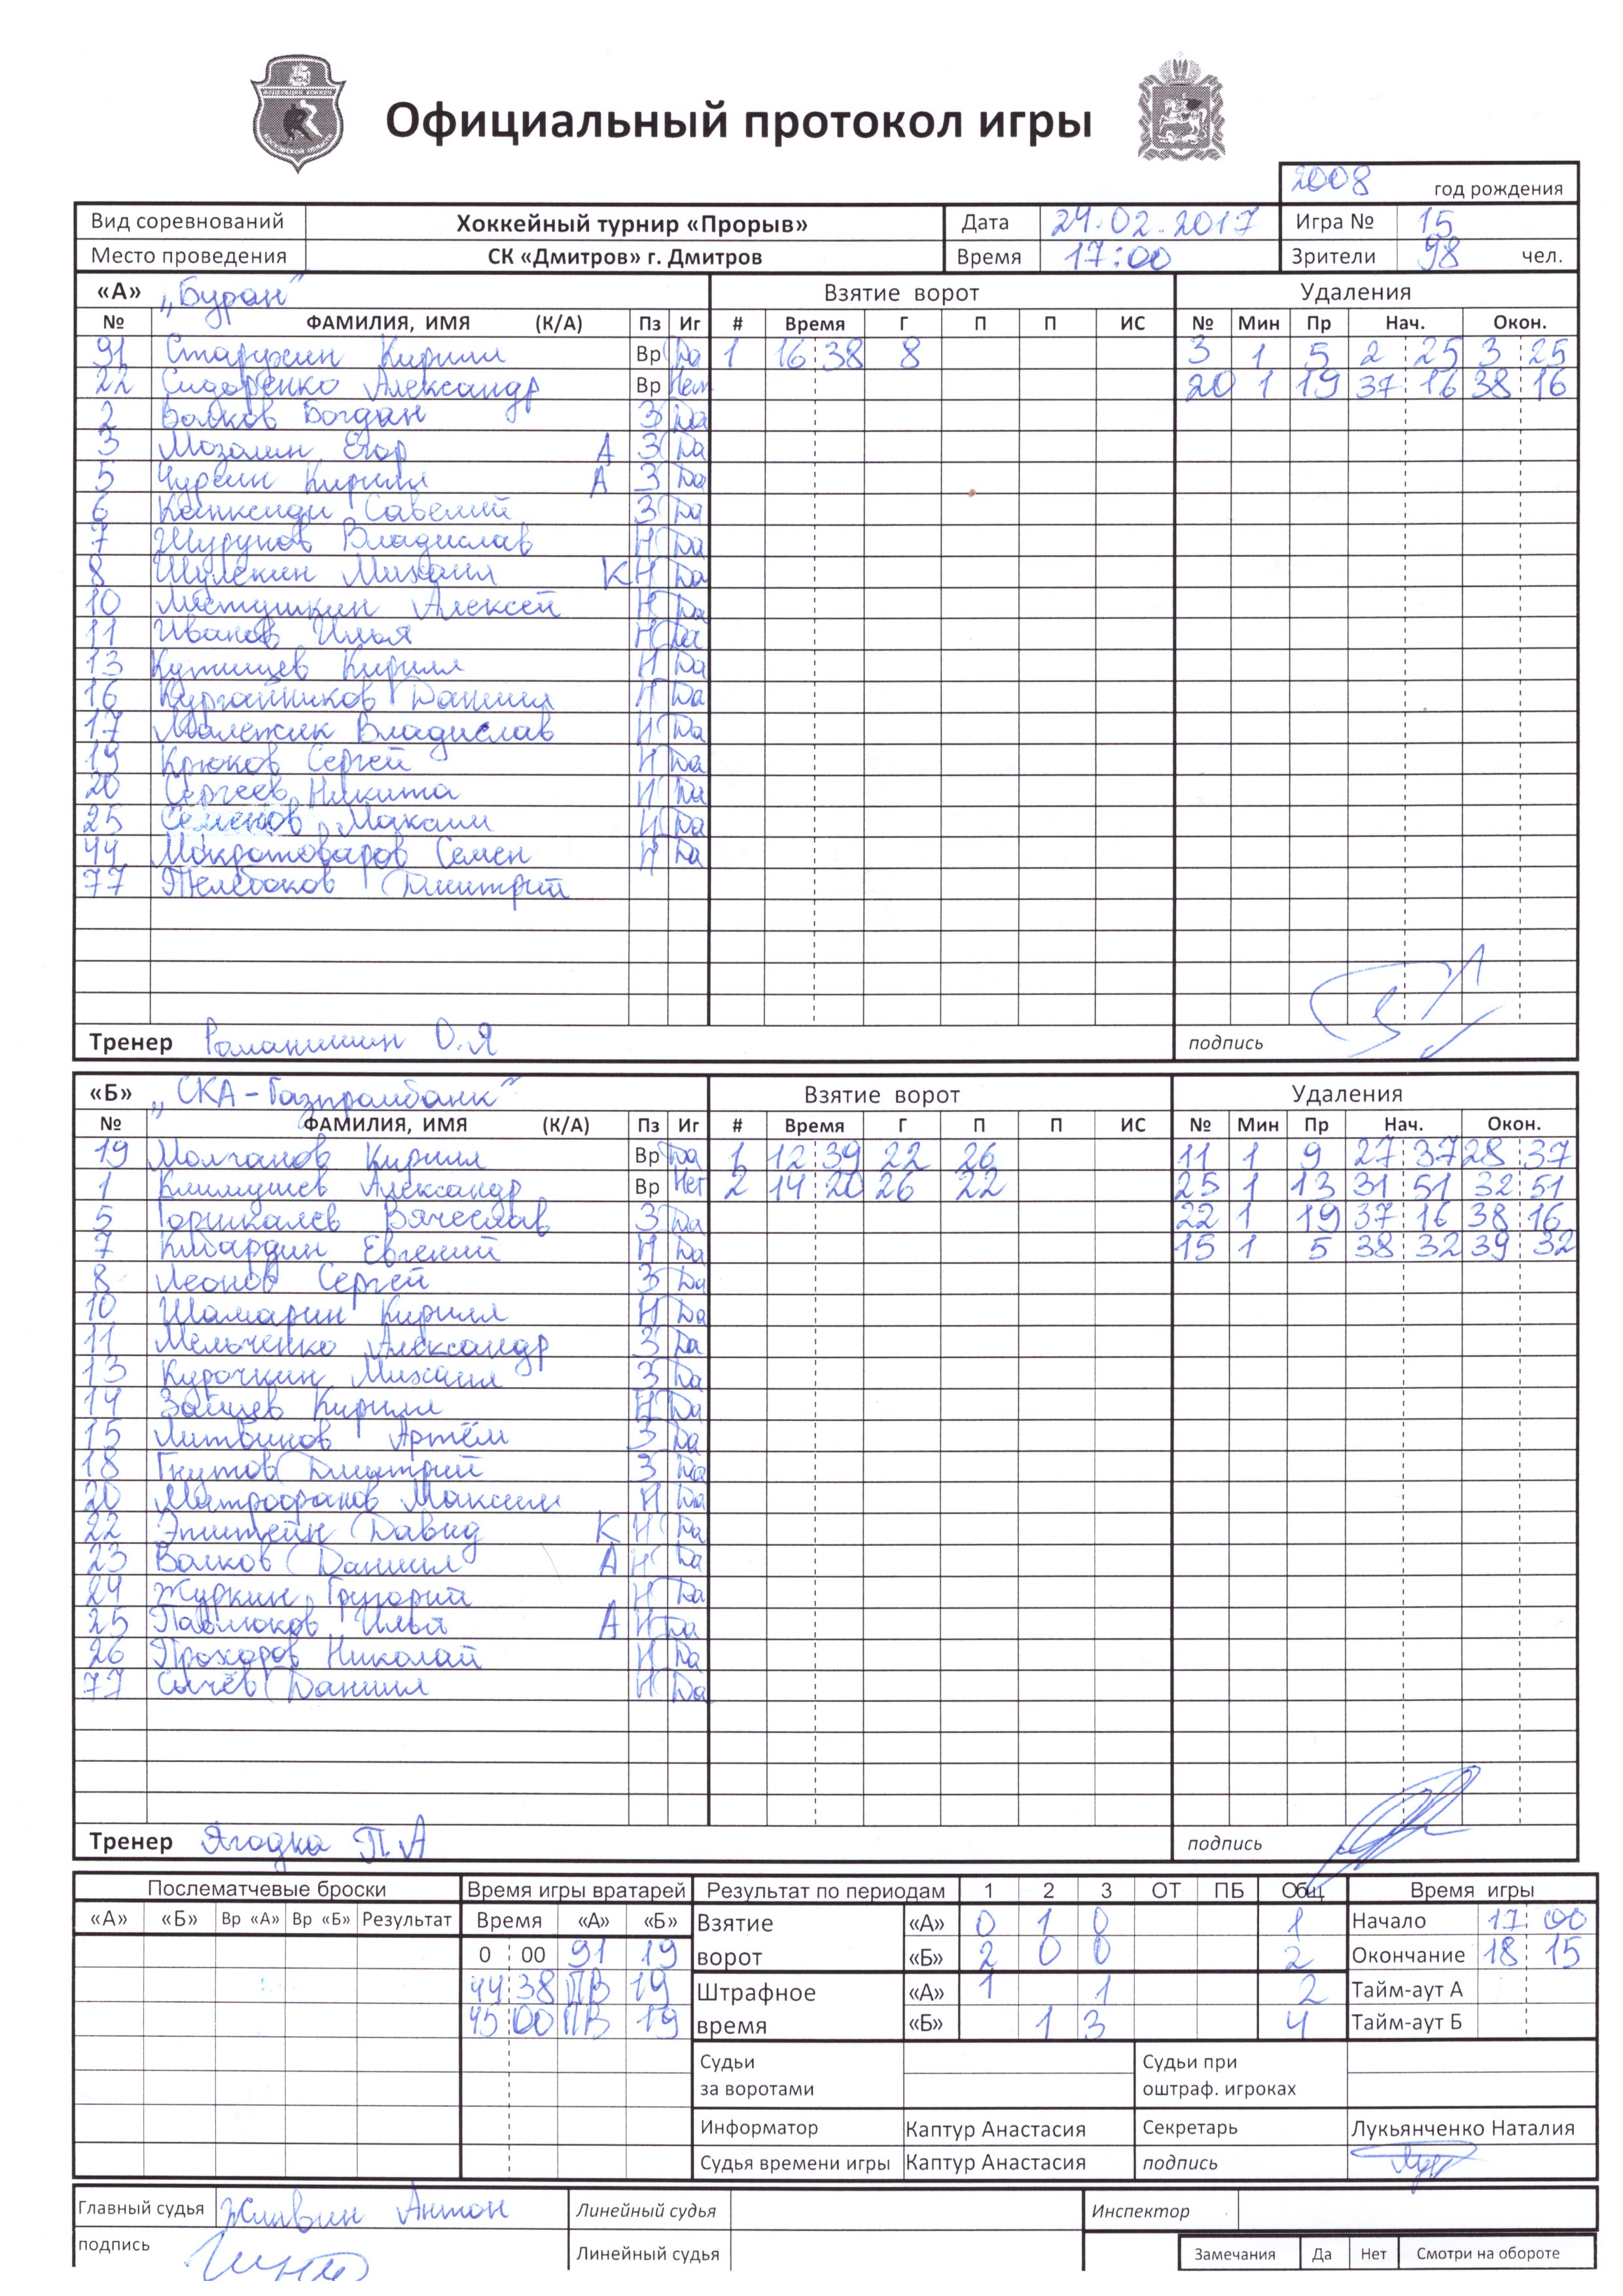 Официальный протокол игры
2008 год рождения
Вид соревнований Хоккейный турнир «Прорыв» Дата 24.02.2017 Игра № 15
Место проведения СК «Дмитров» г. Дмитров Время 17:00 Зрители 98 чел.
«А» „Буран" Взятие ворот Удаления
№ ФАМИЛИЯ, ИМЯ (К/А) Пз Иг # Время Г П П ИС № Мин Пр Нач. Окон.
91 Кирилл Вр Да 1 16 38 8 3 1 5 2 25 3 25
22 Сидоренко Александр Вр Нет 20 1 19 37 16 38 16
2 Волков Богдан З Да
3 Мозолин Егор А З Да
5 Чурсин Кирилл А З Да
6 Савелий З Да
7 Шурупов Владислав Н Да
8 Шулекин Михаил К Н Да
10 Матушкин Алексей Н Да
11 Иванов Илья Н Да
13 Кирилл Н Да
16 Курганников Даниил Н Да
17 Малежик Владислав Н Да
19 Крюков Сергей Н Да
20 Сергеев Никита Н Да
25 Семенов Максим Н Да
44 Мокротоваров Семен Н Да
77 Дмитрий
Тренер Романишин О.Я подпись
«Б» „СКА-Газпромбанк" Взятие ворот Удаления
№ ФАМИЛИЯ, ИМЯ (К/А) Пз Иг # Время Г П П ИС № Мин Пр Нач. Окон.
19 Молчанов Кирилл Вр Да 1 12 39 22 26 11 1 9 27 37 28 37
1 Климушев Александр Вр Нет 2 14 20 26 22 25 1 13 31 51 32 51
5 Горшкалев Вячеслав З Да 22 1 19 37 16 38 16
7 Евгений Н Да 15 1 5 38 32 39 32
8 Леонов Сергей З Да
10 Шамарин Кирилл Н Да
11 Мельченко Александр З Да
13 Курочкин Михаил З Да
14 Зайцев Кирилл Н Да
15 Литвинов Артём З Да
18 Гнутов Дмитрий З Да
20 Митрофанов Максим Н Да
22 Эпштейн Давид К Н Да
23 Волков Даниил А Н Да
24 Журкин Григорий Н Да
25 Павлюков Илья А Н Да
26 Прохоров Николай Н Да
77 Сычёв Даниил Н Да
Тренер Ягодка П.А подпись
Послематчевые броски Время игры вратарей Результат по периодам 1 2 3 ОТ ПБ Общ Время игры
«А» «Б» Вр «А» Вр «Б» Результат Время «А» «Б» Взятие ворот «А» 0 1 0 1 Начало 17 00
0 00 91 19 «Б» 2 0 0 2 Окончание 18 15
44 38 ПВ 19 Штрафное время «А» 1 1 2 Тайм-аут А
45 00 ПВ 19 «Б» 1 3 4 Тайм-аут Б
Судьи за воротами Судьи при оштраф. игроках
Информатор Каптур Анастасия Секретарь Лукьянченко Наталия
Судья времени игры Каптур Анастасия подпись
Главный судья Антон Линейный судья Инспектор
подпись Линейный судья Замечания Да Нет Смотри на обороте